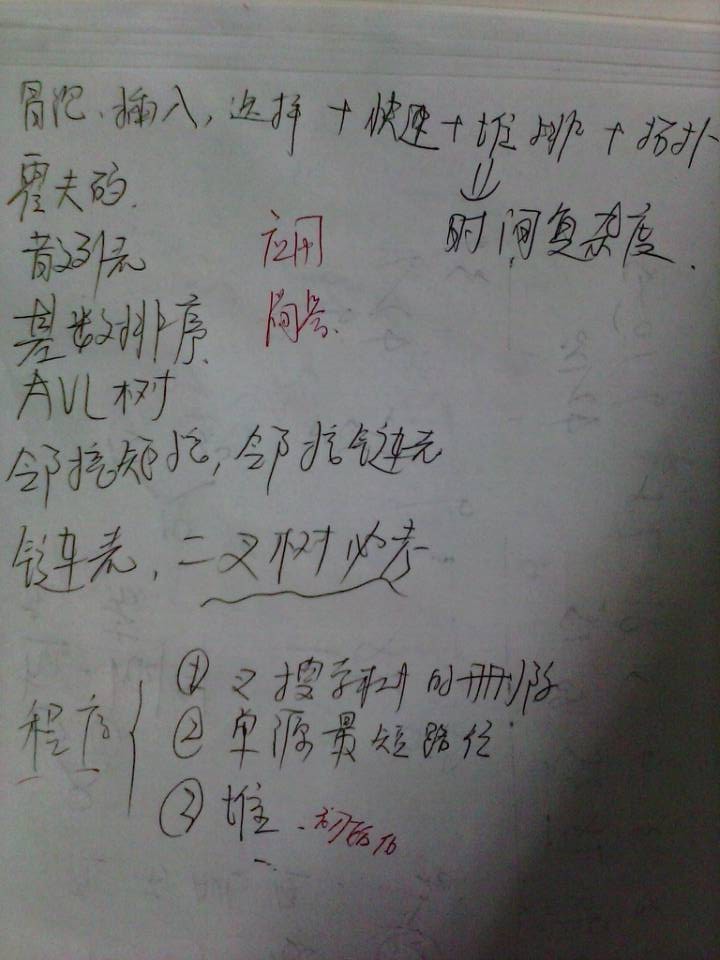 冒泡、插入,选择+快速+堆排+拓扑
⇓
时间复杂度.
霍夫曼.
散列表
应用
基数排序.
简答.
AVL树
邻接矩阵,邻接链表
链表,二叉树必考
程序
① 二叉搜索树的删除
② 单源最短路径
③ 堆.初始化